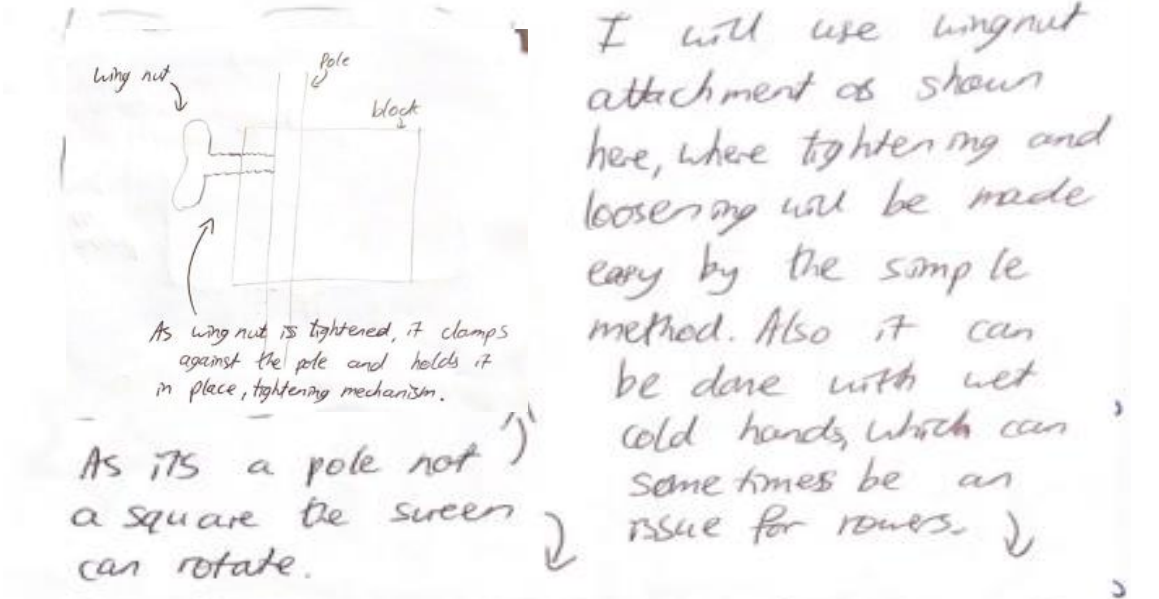 wing nut
pole
block
As wing nut is tightened, it clamps
against the pole and holds it
in place, tightening mechanism.
As its a pole not
a square the sureen
can rotate.
I will use wingnut
attachment as shown
here, where tightening and
loosening will be made
easy by the simple
method. Also it can
be done with wet
cold hands, which can
sometimes be an
issue for rowers.